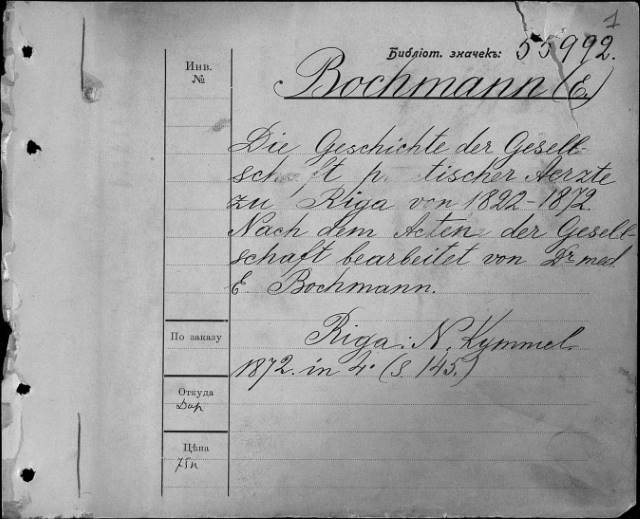 1
Библіот. значекъ: 55992.
Инв.
№
Bochmann (E.)
Die Geschichte der Gesell-
schaft p tischer Aerzte
zu Riga von 1822-1872
Nach dem Acten der Gesell-
schaft bearbeitet von Dr med.
E. Bochmann.
По заказу
Riga: N. Kymmel.
1872. in 4° (S. 145.)
Откуда
Дар
Цѣна
75к